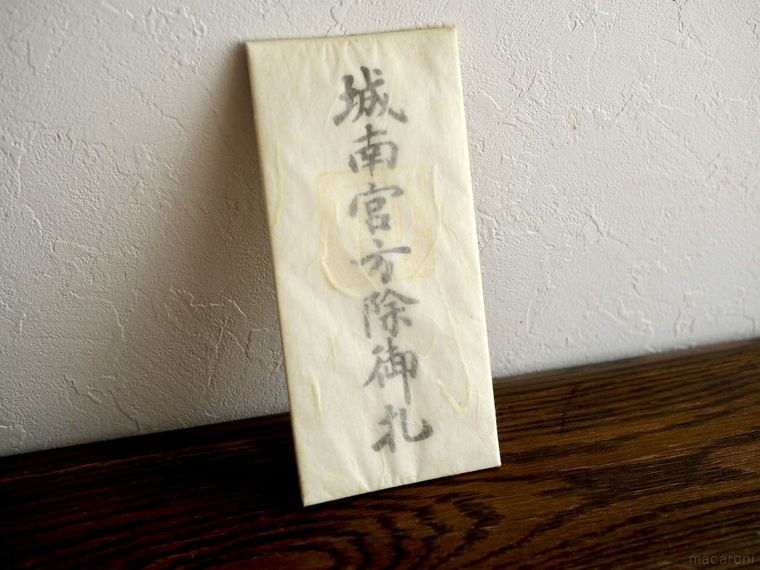 城南宮方除御札
macaroni